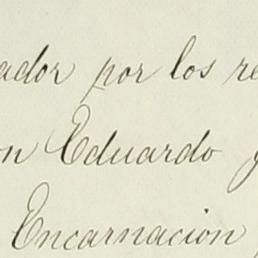 ador por los re
on Eduardo y
Encarnacion